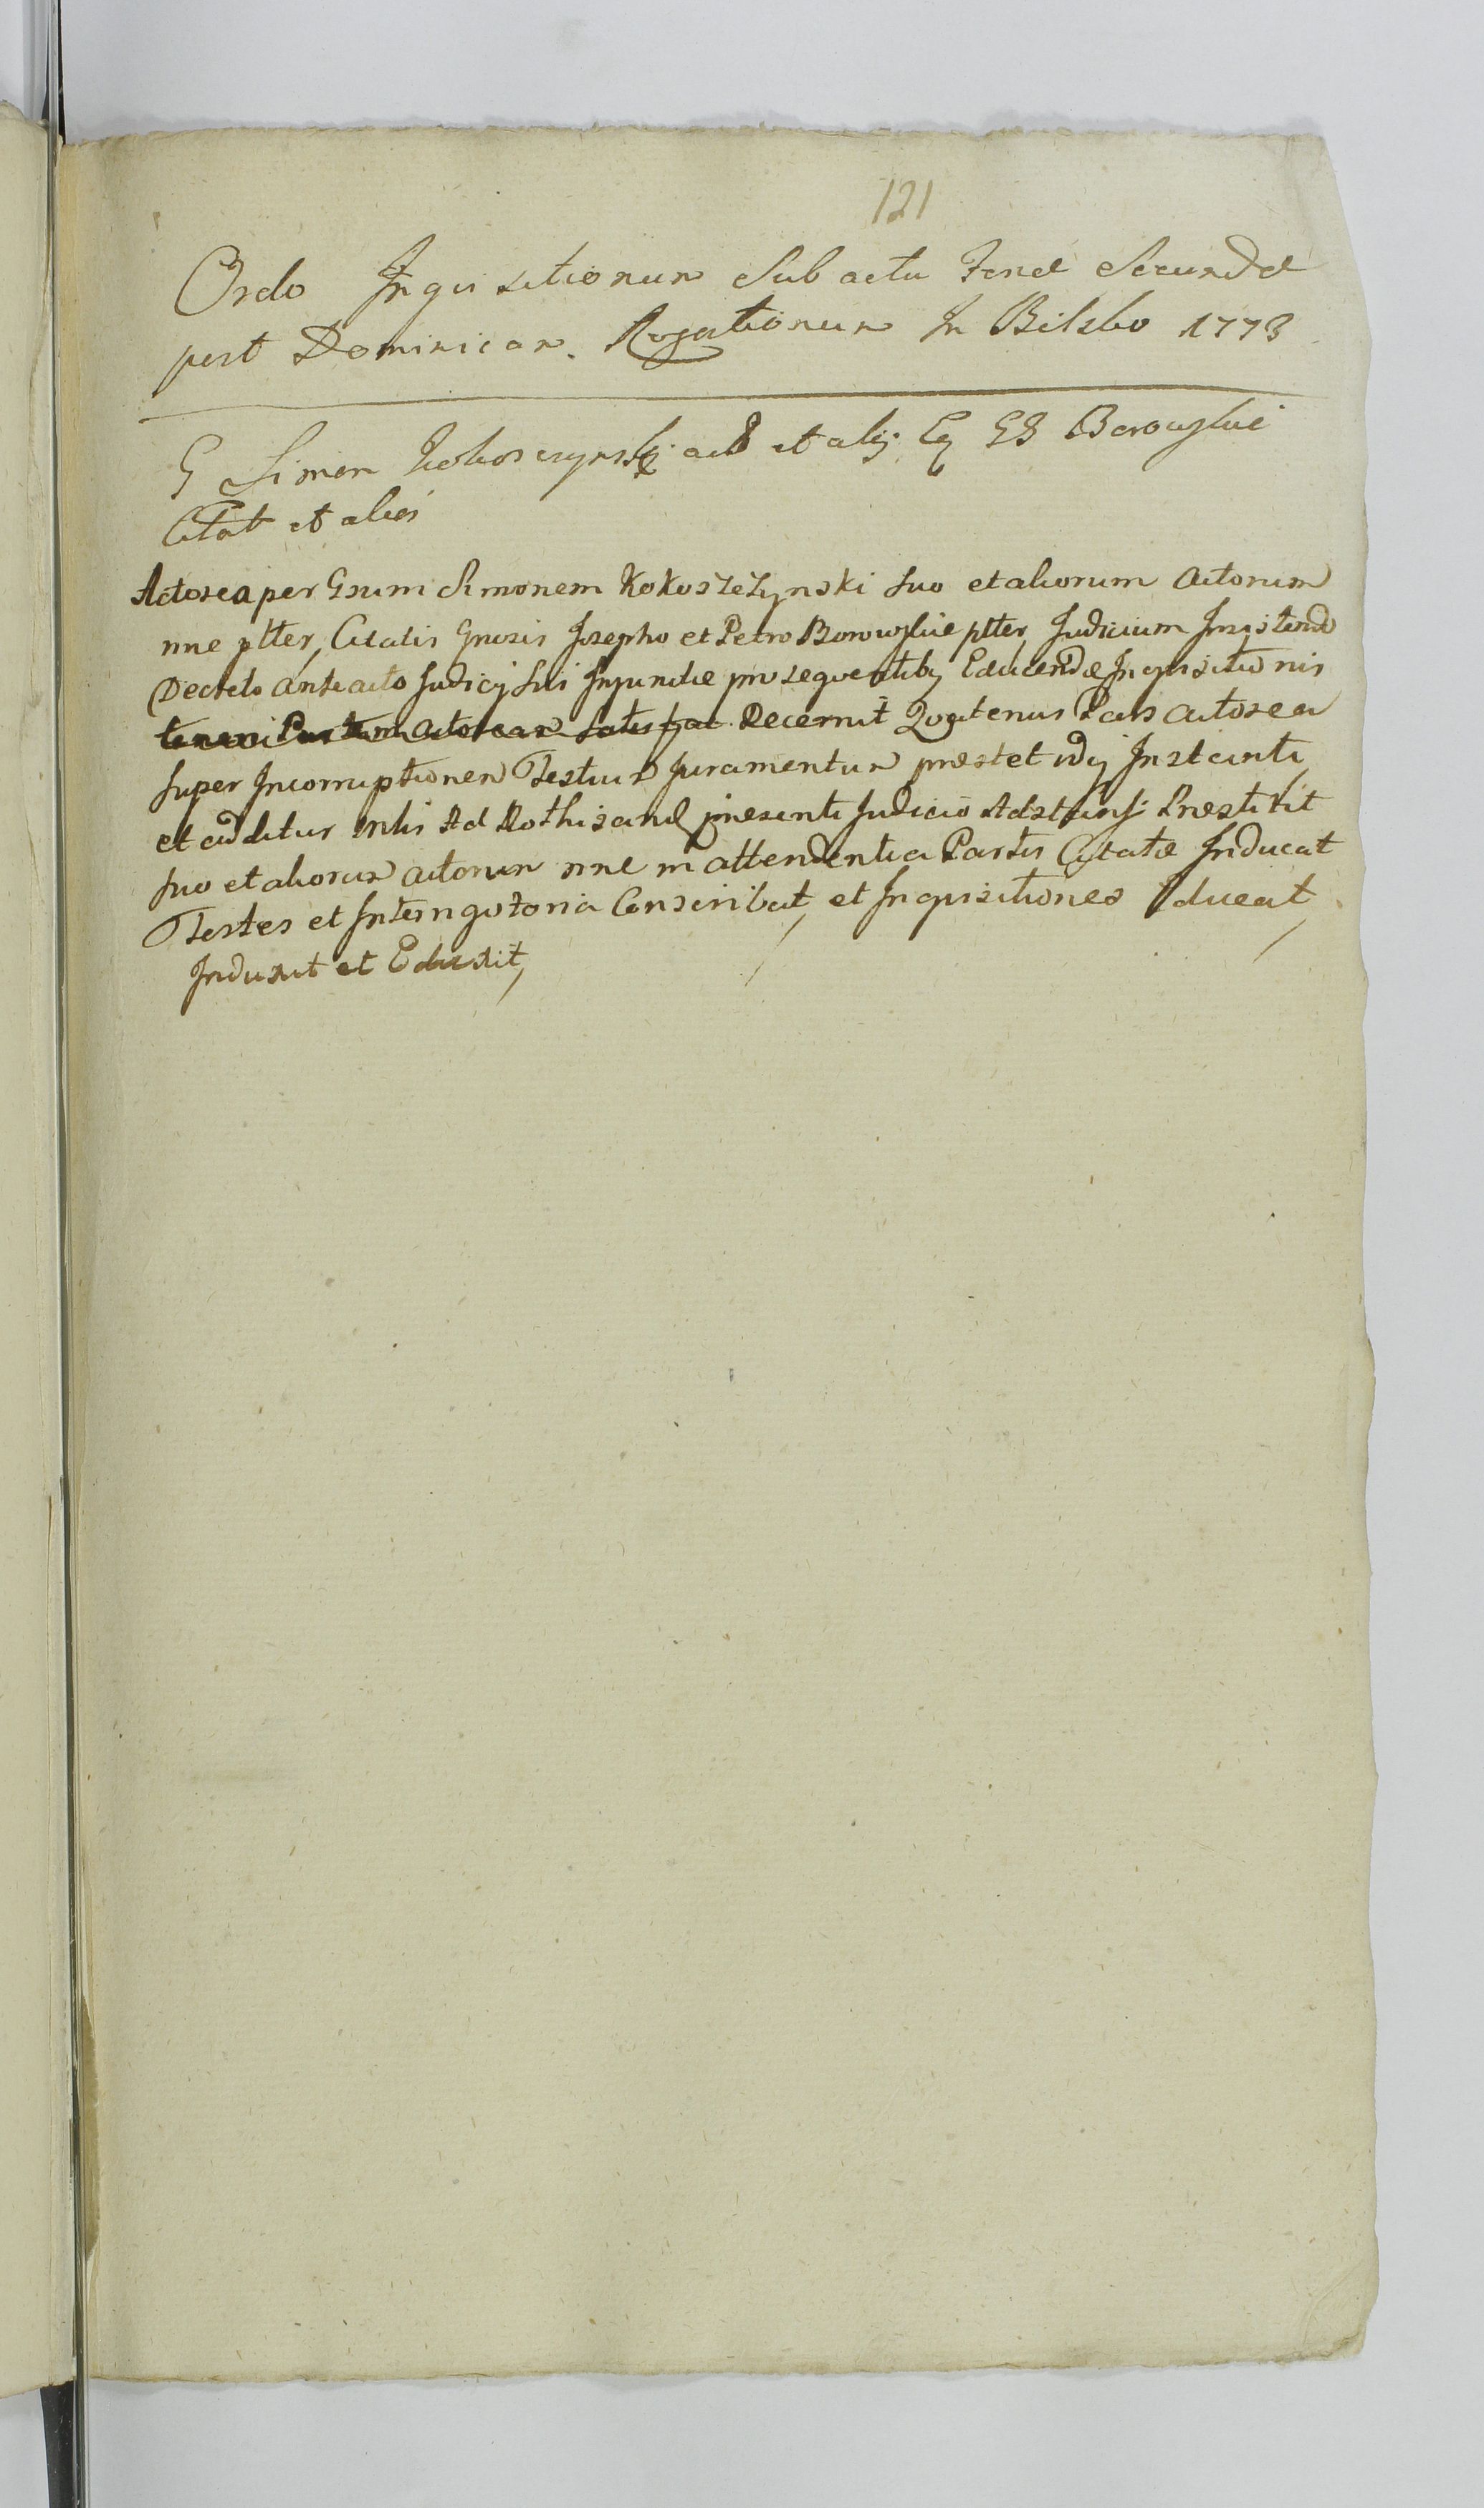 121
Ordo Inquisitionum Sub actu Feriæ Secundæ
post Dominicam Rogationum In Bilsko 1773
G Simon Kokoszczynski act et alij Cq GG Borowskie
Citat et alios
Actorea per Gsum Simonem Kokoszczynski suo et aliorum Actorum
nne ptter, Citatis Gnosis Josepho et Petro Borowskie ptter, Judicium Insistendo
Decreto anteacto Judicij sui Injunctæ prosequentibq Educendæ Inquisitionis
teneri Partem Actoream Satisfac Decernit Quatenus Pars Actorea
super Incorruptionem Testium Juramentum præstet idq Instanti
et auditur Ad Rothisand præsenti Judicio Præstitit
suo et aliorum Actorum nne in attendentia Partis Citatæ Inducat
Testes et Interrogatoria Conscribat, et Inquisitiones Educat,
Induxit et Eduxit,